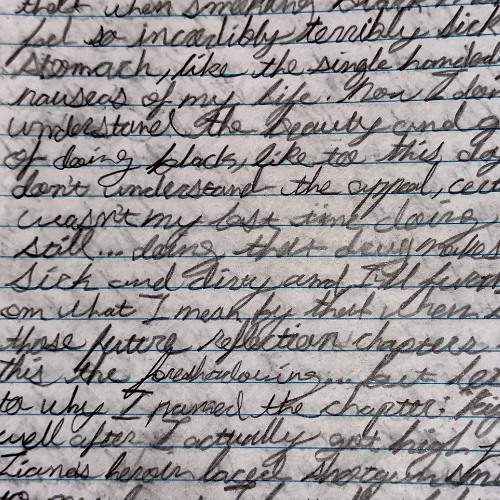 that when smoking
feel so incredibly terribly sick
stomach, like the single handed
nauseas of my life. Now I do
understand the beauty and
of doing black, like to this day
don't understand the appeal,
wasn't my last time doing
still... doing that drug makes
sick and dizzy and I'll
on what I mean by that when
those future reflection chapters
this the foreshadowing... but
to why I named the chapter:
well after I actually got high
Liands heroin laced shotgun
to